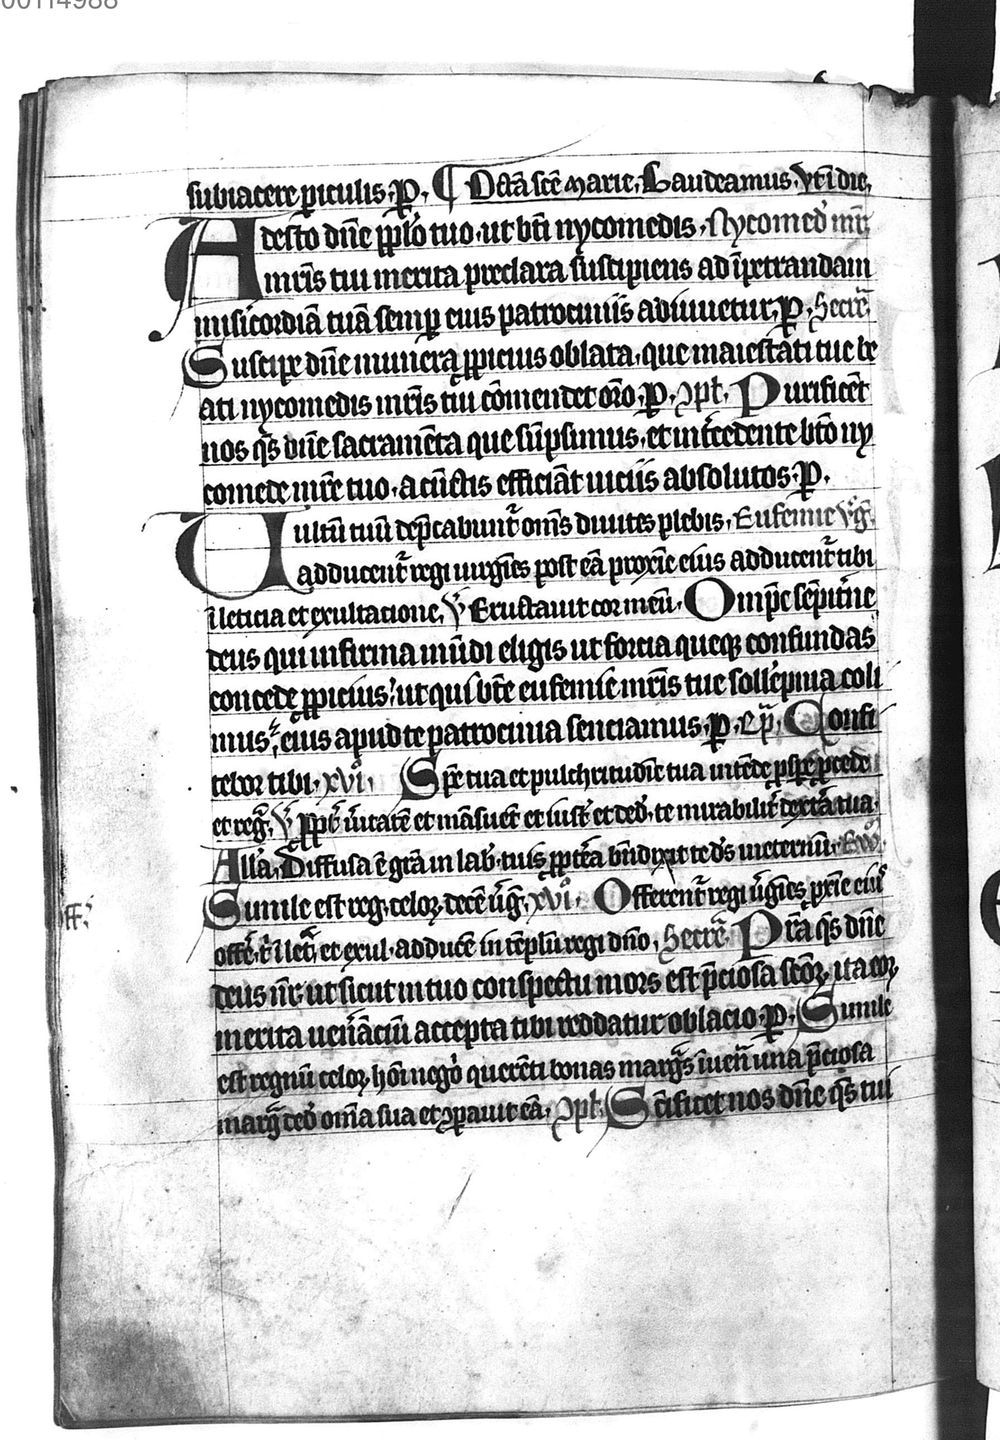 00114988
subiacere ꝑiculis. P. ¶ Octā scē marie. Gaudeamus. ut ī die.
Adesto dn̄e pp̄lo tuo. ut bt̄i nycomedis. Nycomed' mr̄.
mr̄is tui merita preclara suscipiens ad īpetrandam
misicordiā tuā semꝑ eius patrociniis adiuuetur. P. Secre.
Suscipe dn̄e munera ꝓpicius oblata. que maiestati tue be
ati nycomedis mr̄is tui cōmendet or̄o. P. ꝯpl. Purificēt
nos qs̄ dn̄e sacramēta que sūpsimus. et int̄cedente bt̄o ny
comede mr̄e tuo. a cūctis efficiāt uiciis absolutos. P.
Uultū tuū dep̄cabunt̄ om̄s diuites plebis. Eufemie v̓g̓.
adducent̄ regi uirgīes post eā proxīe eius adducent̄ tibi
ī leticia et exultacione. V̓ Eructauit cor meū. Omp̄s sēpit̓ne
deus qui infirma mūdi eligis ut forcia queqꝫ confundas
concede ꝓpicius. ut qui bt̄e eufemie mr̄is tue sollēpnia coli
mus. eius apud te patrocinia senciamus. P. ep̄. Confi
tebor tibi. xvi. Spē tua et pulchritudīe tua intēde ꝓspe ꝓcede
et reḡ. V̓ ꝓpt̓ u̓itatē et māsuet̓ et iust̓ et ded̓. te mirabilit̓ dext̓a tua.
All'a. Diffusa ē gr̄a in lab̓. tuis ꝓpt̓ea bn̄dixit te ds̄ in eternū. Ew̓.
Simile est reg. celoꝝ decē u̓g̓. xvi. Offerent̄ regi u̓gīes ꝓxīe eius
off̄.
offē. t̓ ī let̓. et exul. adducē in tēplū regi dn̄o. Secre. Pr̄a qs̄ dn̄e
deus nr̄. ut sicut in tuo conspectu mors est p̄ciosa scōꝝ. ita eoꝝ
merita uen̄āciū accepta tibi reddatur oblacio. P. Simile
est regnū celoꝝ hōi negō querēti bonas marḡs īuen̄ una p̄ciosa
marḡ ded̓ om̄a sua et ꝯparauit eā. ꝯpl. Scīficet nos dn̄e qs̄ tui